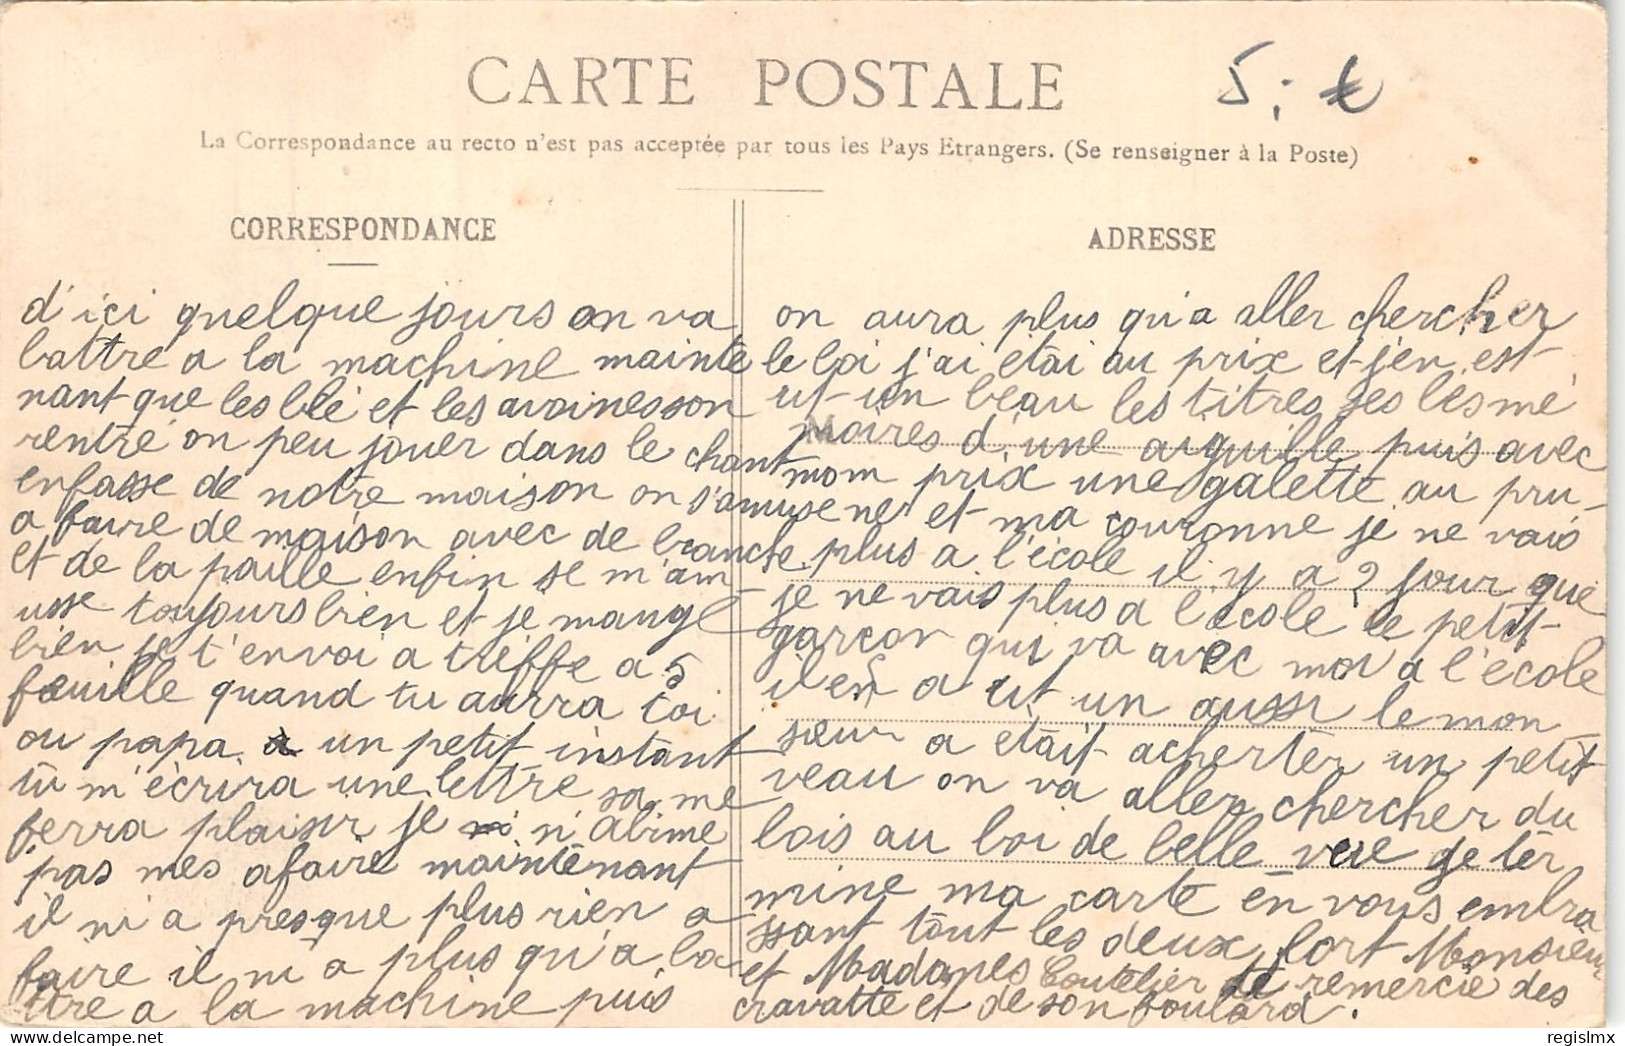 CARTE POSTALE
5,- €
La Correspondance au recto n'est pas acceptée par tous les Pays Etrangers. (Se renseigner à la Poste)
CORRESPONDANCE
d'ici quelque jours on va
battre a la machine mainte
nant que les blé et les avoines son
rentré on peu jouer dans le chant
enfasse de notre maison on s'amuse
a faire de maison avec de branche
et de la paille enfin se m'am
usse toujours bien et je mange
bien je t'envoi a trèffe a 5
feuille quand tu aurra toi
ou papa un petit instant
tu m'écrira une lettre sa me
ferra plaisir je n'abime
pas mes afaire maintenant
il ni a presque plus rien a
faire il ni a plus qu'a ba
ttre a la machine puis
ADRESSE
on aura plus qu'a aller chercher
le boi j'ai étai au prix et j'en est
ut un beau les titres ses les mé
moires d'une aiguille puis avec
mom prix une galette au pru-
ner et ma couronne je ne vais
plus a l'école il y a 2 jour que
je ne vais plus a l'école le petit
garçon qui va avec moi a l'école
il en a ut un aussi le mon
sœur a était acherter un petit
veau on va aller chercher du
bois au boi de belle vue je ter
mine ma carte en vous embra
ssant tout les deux fort Monsieur
et Madames Coutelier te remercie des
cravatte et de son foulard.
regislmx